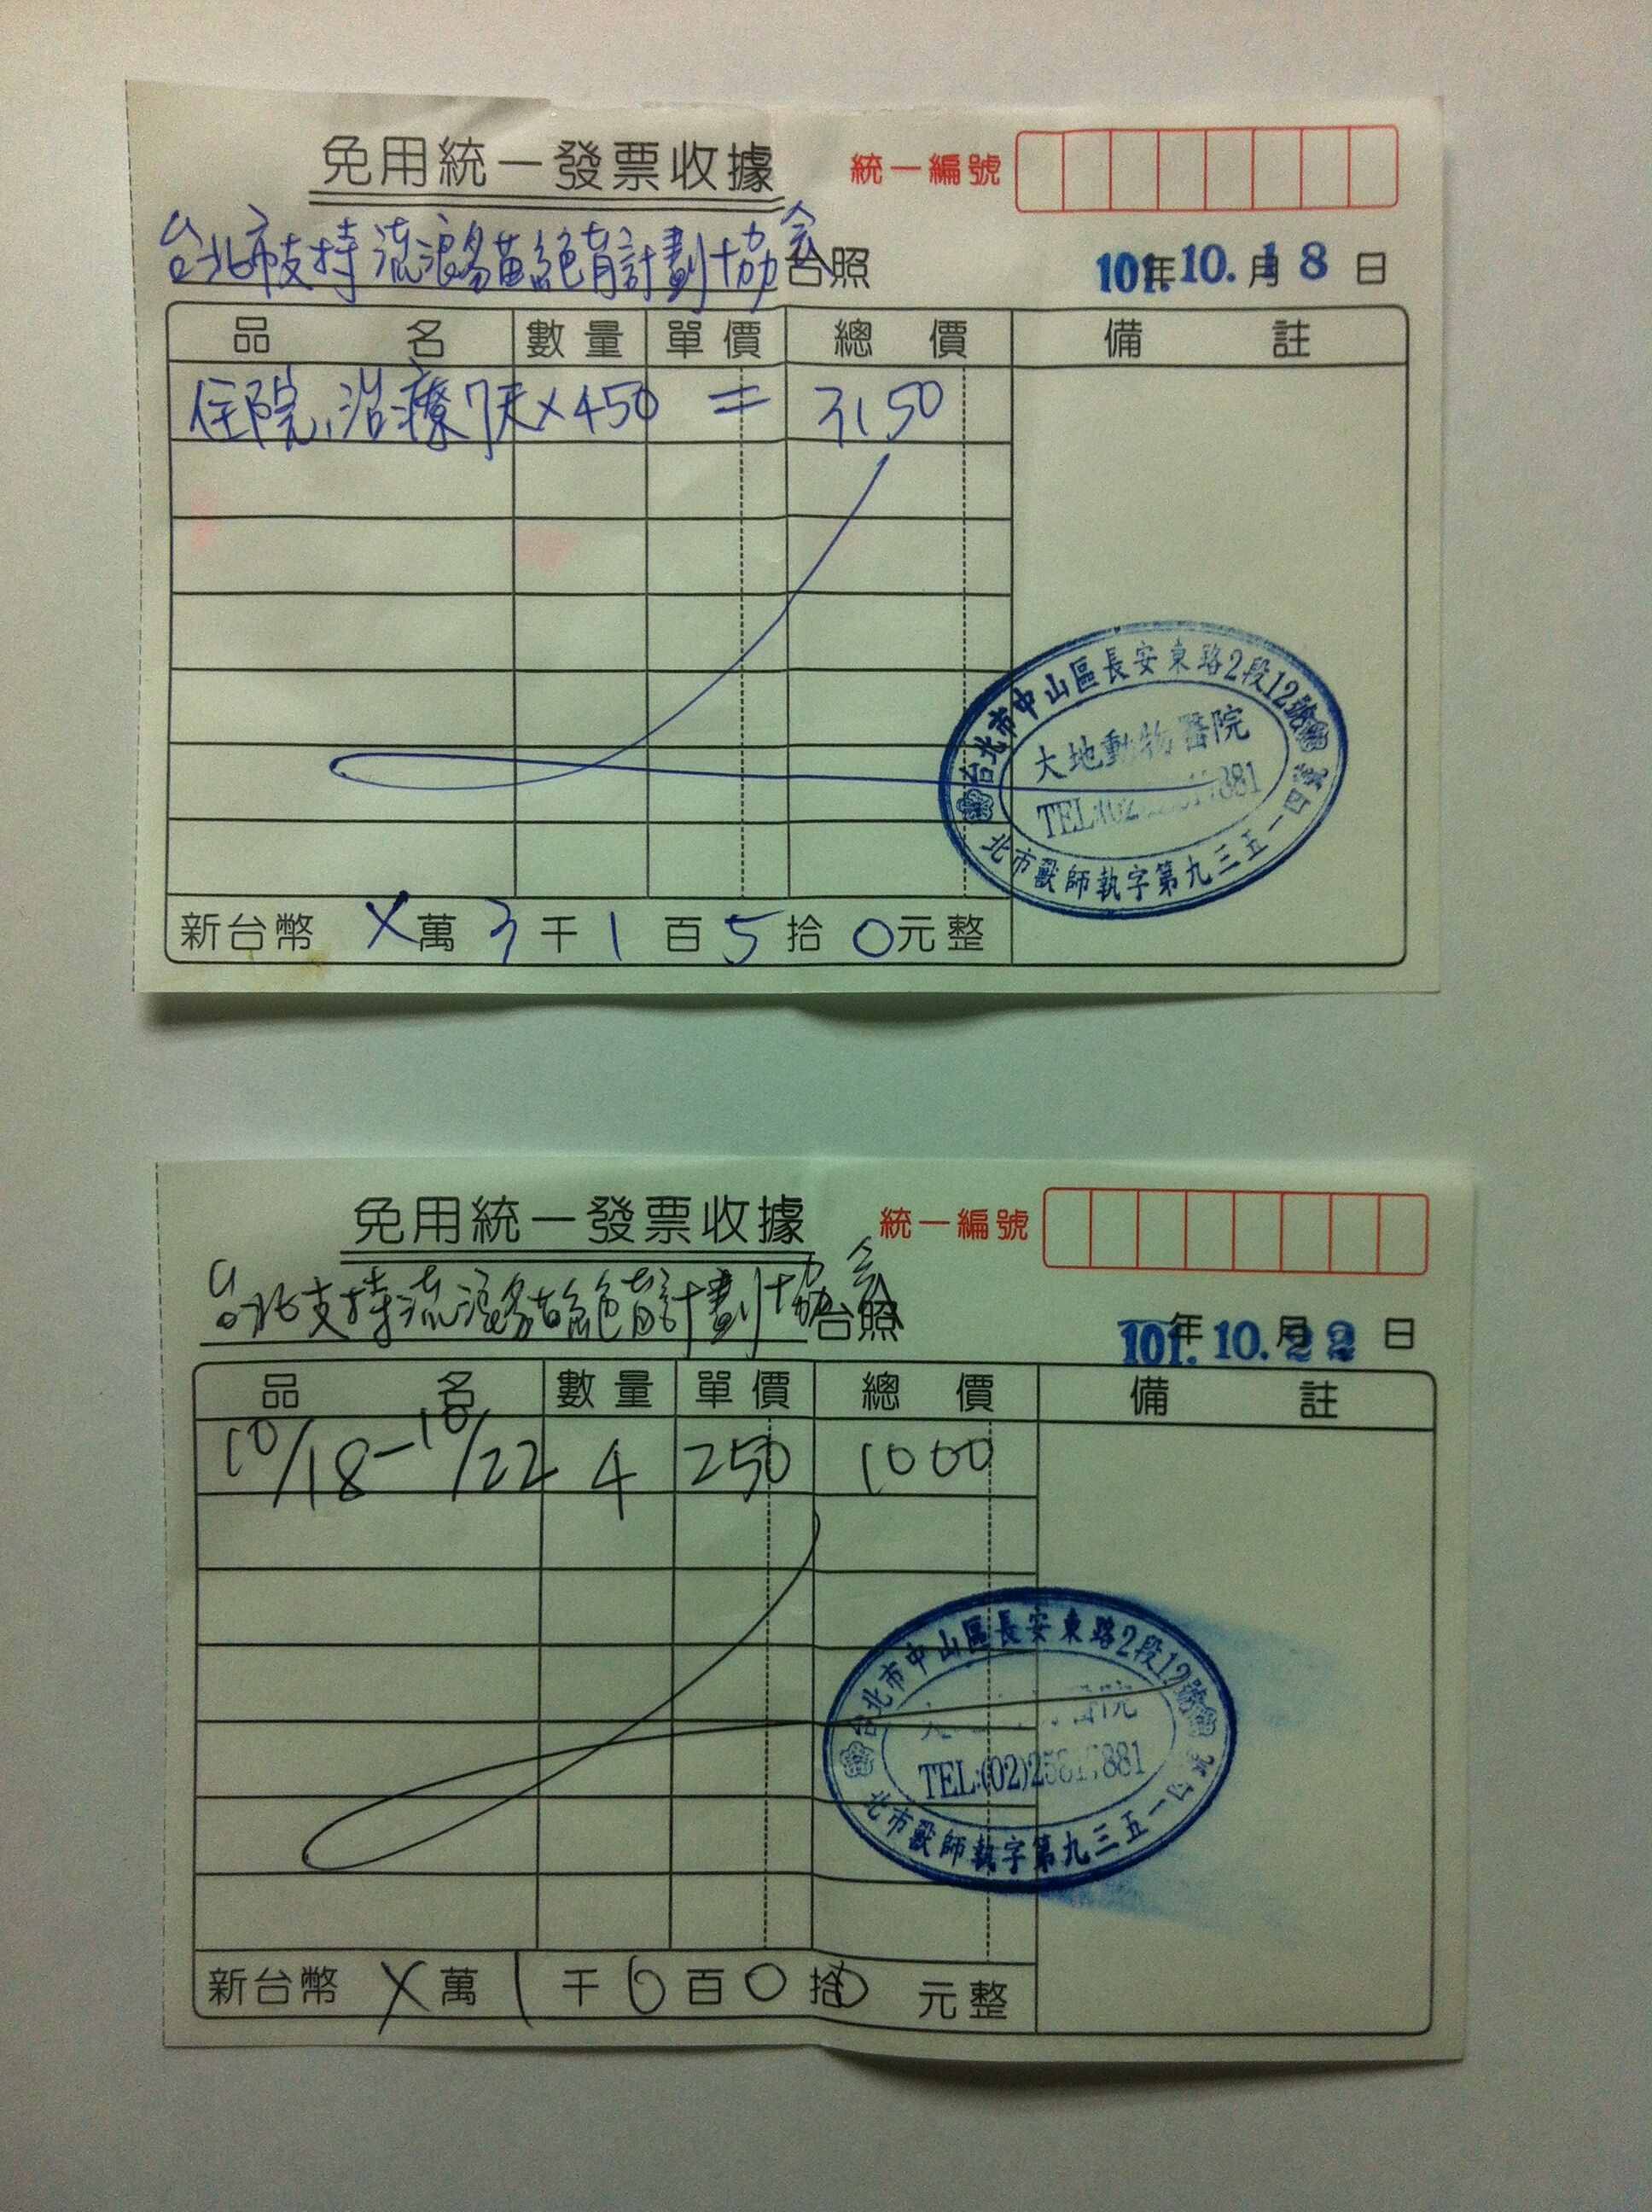 免用統一發票收據 統一編號
台北市支持流浪貓絕育計劃協會 台照 101年10.月18日
品名 數量 單價 總價 備註
住院、治療7天×450 = 3150
台北市中山區長安東路2段12號
大地動物醫院
TEL:(02)
881
北市獸師執字第九三五一四號
新台幣 X萬3千1百5拾0元整
免用統一發票收據 統一編號
台北支持流浪貓絕育計劃協會 台照 101年.10.月22日
品名 數量 單價 總價 備註
10/18-10/22 4 250 1000
台北市中山區長安東路2段12號
醫院
TEL:(02)25817881
北市獸師執字第九三五一四號
新台幣 X萬1千0百0拾0元整